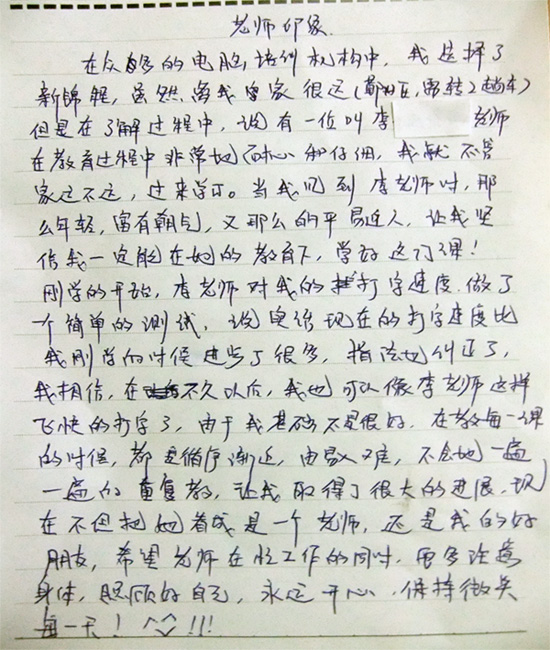 老师印象
在众多的电脑培训机构中，我选择了
新锦程，虽然离我家很远（需转2趟车）
但是在了解过程中，说有一位叫李 老师
在教育过程中非常地耐心和仔细，我就不管
家远不远，过来学习。当我见到李老师时，那
么年轻，富有朝气，又那么的平易近人，让我坚
信我一定能在她的教育下，学好这门课！
刚学的开始，李老师对我的打字速度做了
个简单的测试，说实话现在的打字速度比
我刚学的时候进步了很多，指法也纠正了，
我相信，在不久以后，我也可以像李老师这样
飞快的打字了，由于我基础不是很好，在教每一课
的时候，都是循序渐近，由易入难，不会她一遍
一遍的重复教，让我取得了很大的进展，现
在不但把她看成是一个老师，还是我的好
朋友，希望老师在忙工作的同时，要多注意
身体，照顾好自己，永远开心，保持微笑
每一天！^^!!!